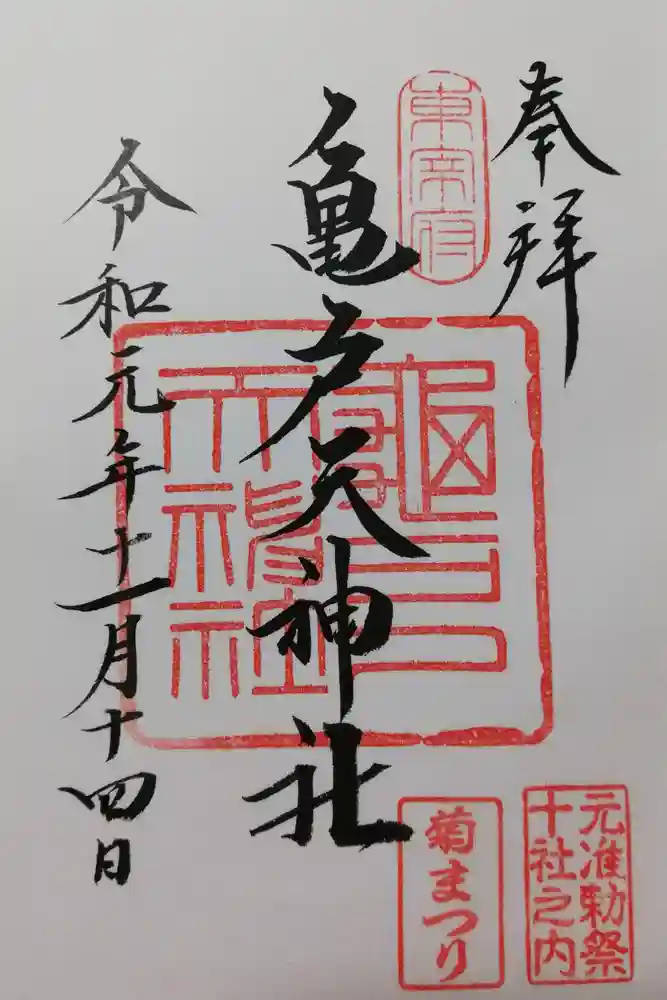 奉拝
東宰府
亀戸天神社
亀戸
天神社
令和元年十一月十四日
元准勅祭
十社之内
菊まつり